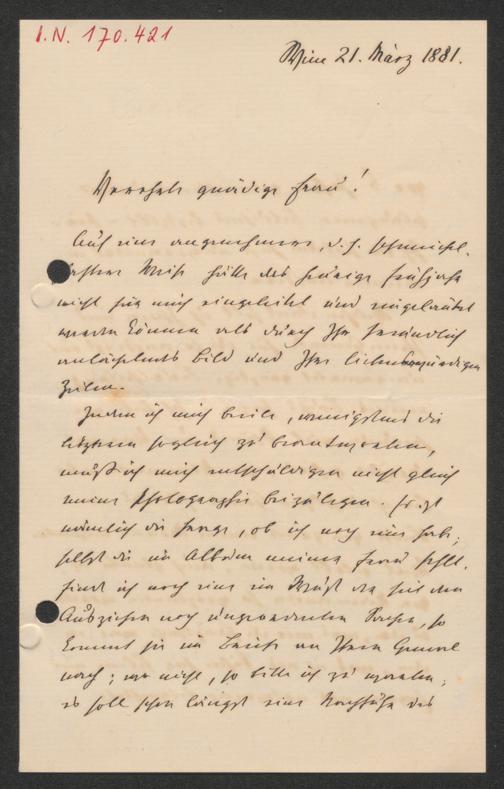 I.N. 170.421
Wien 21. März 1881.
Verehrte gnädige Frau!
Auf eine angenehmere, d. h. schmeichel-
haftere Weise hätte das heurige Frühjahr
nicht für mich eingeleitet und eingeläutet
werden können als durch Ihr freundlich
anlächelndes Bild und Ihre liebenswürdigen
Zeilen.
Indem ich mich beeile, wenigstens die
letzteren sogleich zu beantworten,
muß ich mich entschuldigen nicht gleich
meine Photographie beizulegen. Es ist
nämlich die Frage, ob ich noch eine habe;
selbst die im Album meiner Frau fehlt.
Finde ich noch eine im Wust der seit dem
Ausziehen noch ungeordneten Sachen, so
kommt sie im Briefe an Ihren Gemal
nach; wo nicht, so bitte ich zu warten;
es soll schon längst eine Nachfuhr des